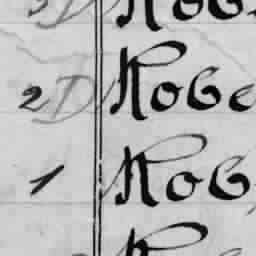 3D Rob
2D Robe
1 Rob